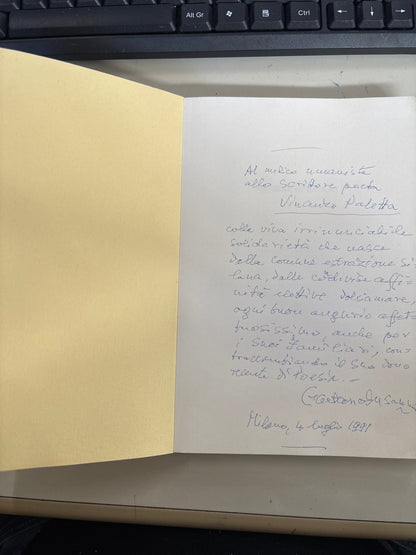 Alt Gr
Ctrl
Al medico umanista
allo scrittore poeta
Vincenzo Paletta
colla viva irrinunciabile
solidarietà che nasce
dalla comune estrazione si-
lana, dalle condivise affi-
nità elettive dolciamare,
ogni buon augurio affet-
tuosissimo, anche per
i Suoi familiari, con-
traccambiando il Suo dono
recente di Poesie. -
Milano, 4 luglio 1991